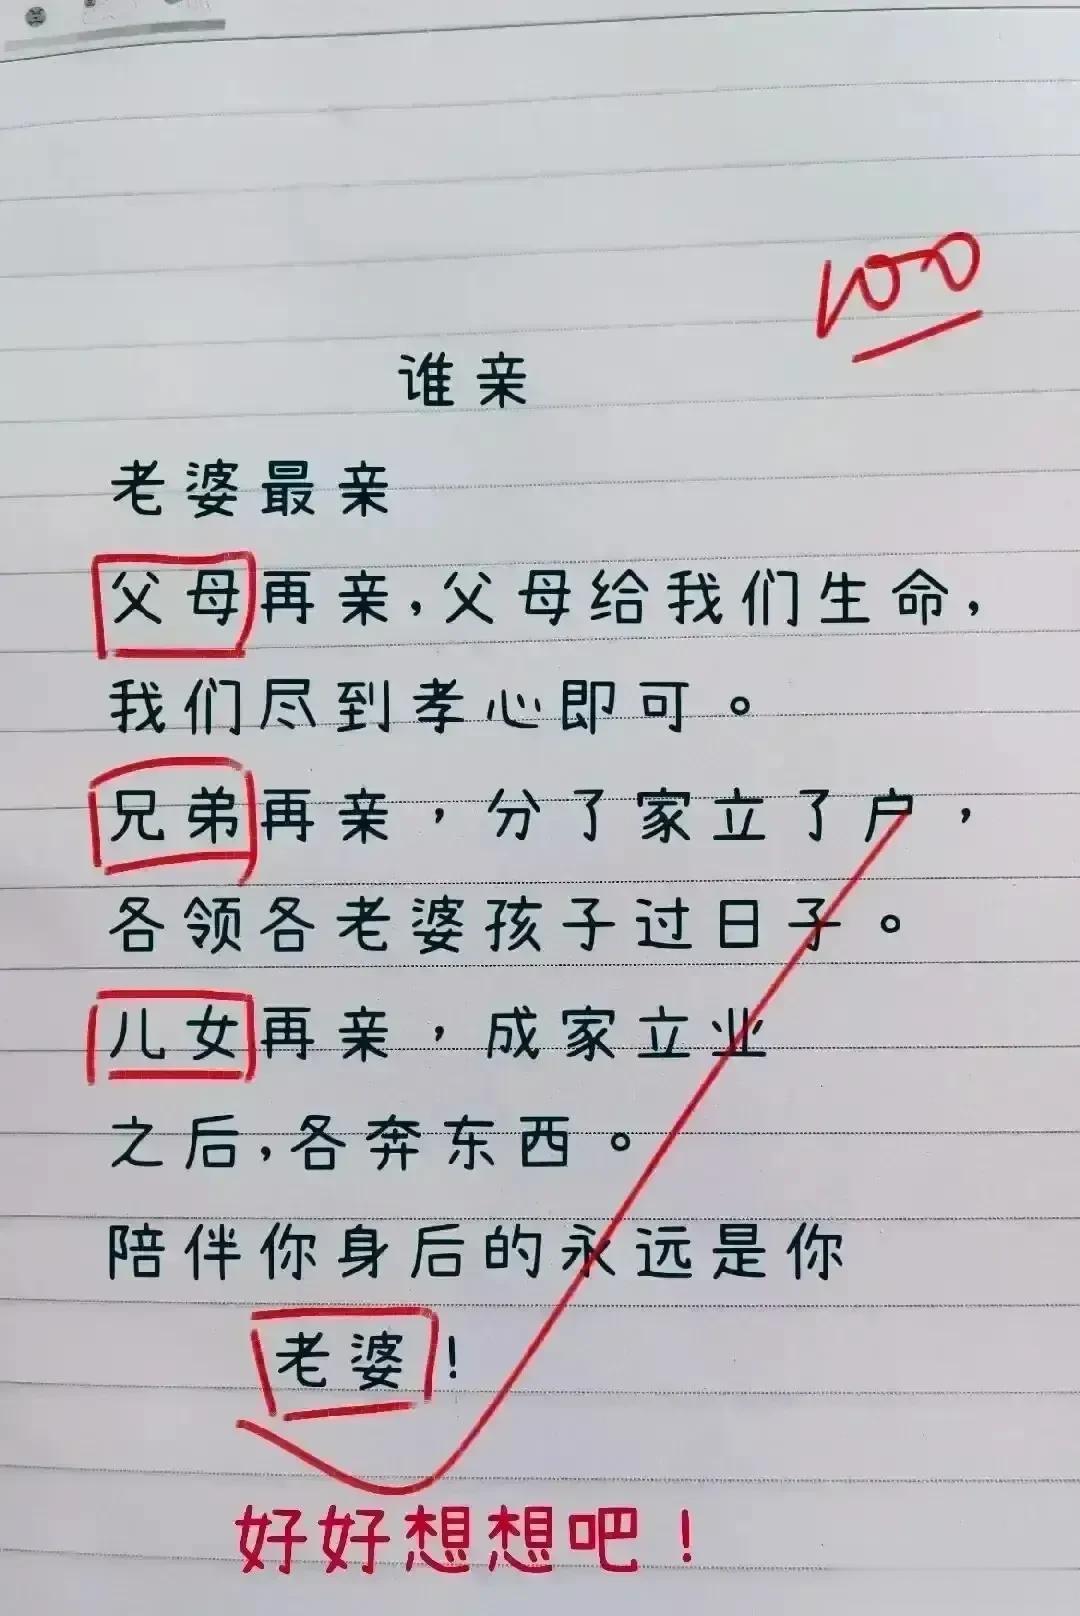 100
谁亲
老婆最亲
父母再亲,父母给我们生命,
我们尽到孝心即可。
兄弟再亲,分了家立了户,
各领各老婆孩子过日子。
儿女再亲,成家立业
之后,各奔东西。
陪伴你身后的永远是你
老婆!
好好想想吧!